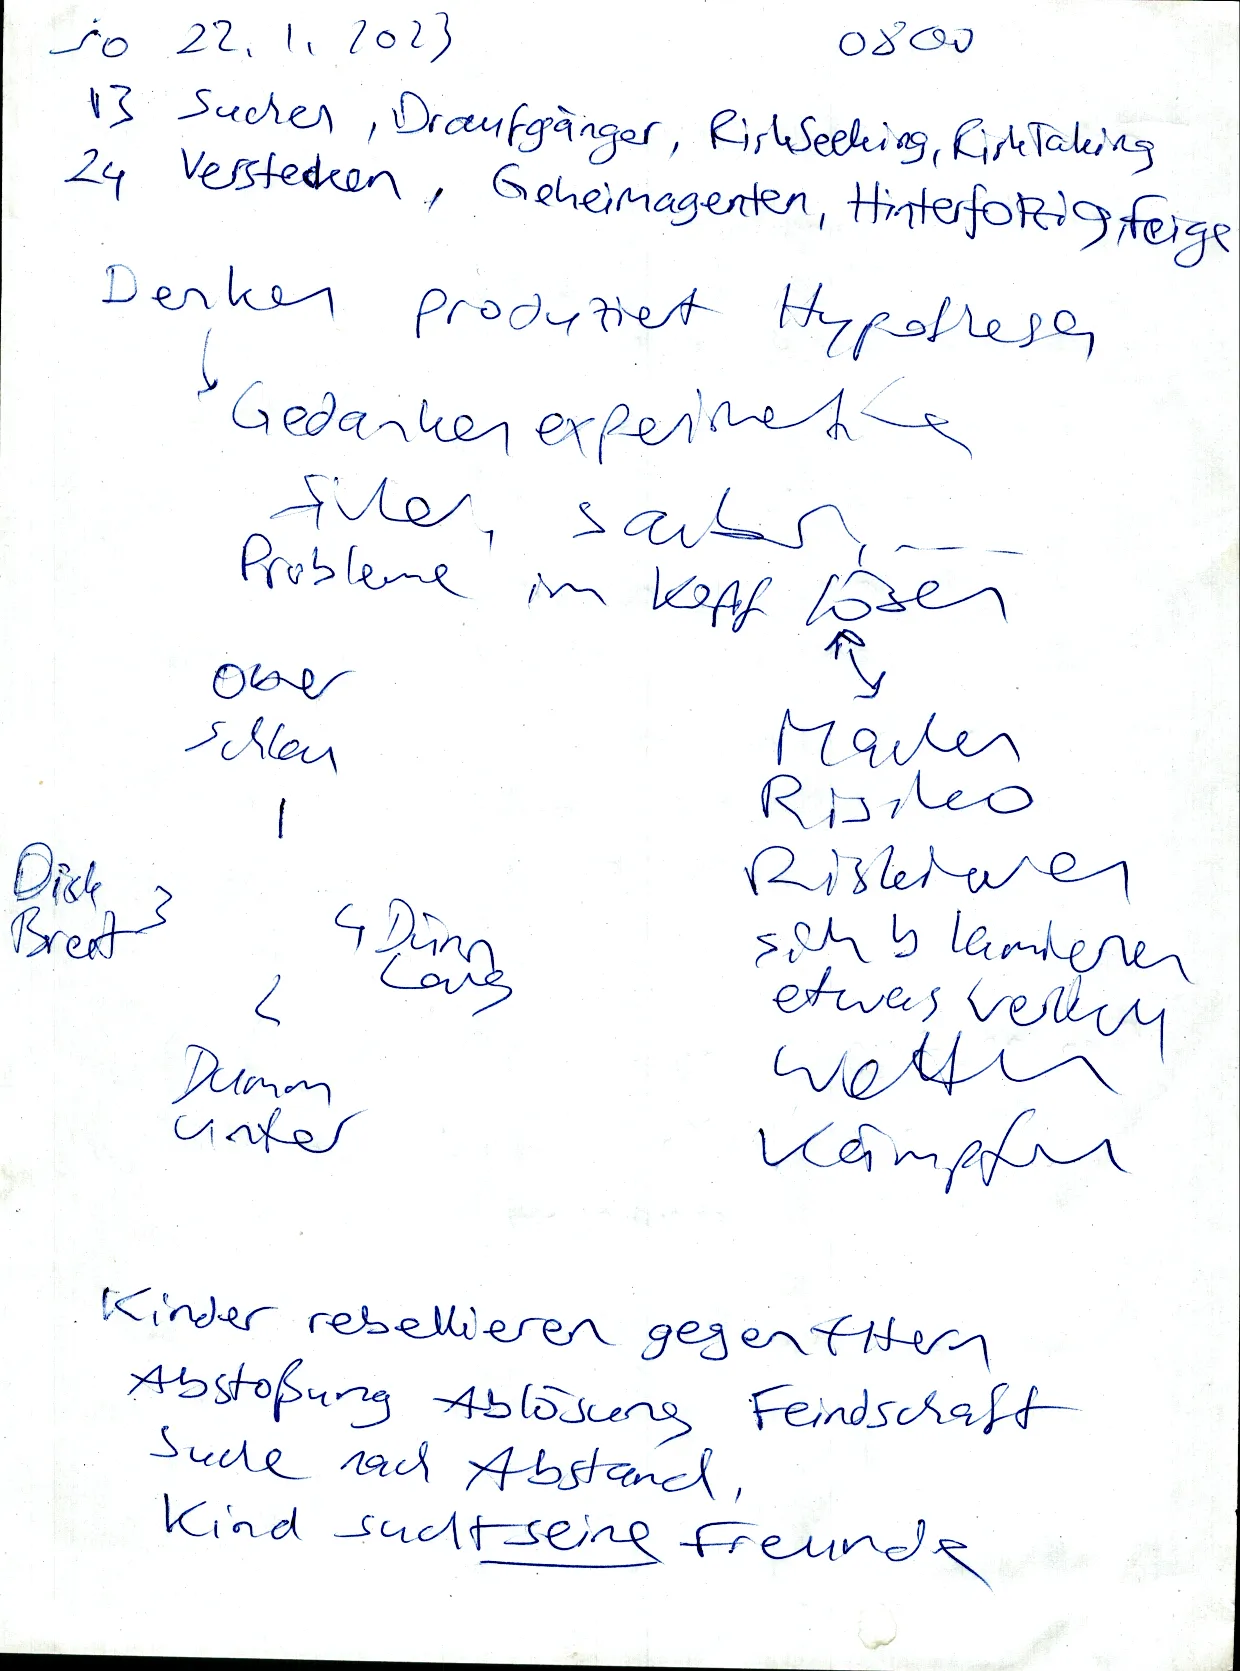 So 22. 1. 2023 0800
13 Suchen, Draufgänger, RiskSeeking, RiskTaking
24 Verstecken, Geheimagenten, Hinterfotzig, feige
Denken produziert Hypothesen
Gedankenexperimente
sauber, ----
Probleme im Kopf lösen
Ober
Schlau
1
Machen
Risiko
Dick
Breit 3
Riskieren
4 Dünn
Lang
sich blamieren
etwas verlieren
2
Wetten
Dumm
unter
Kämpfen
Kinder rebellieren gegen Eltern
Abstoßung Ablösung Feindschaft
Suche nach Abstand,
Kind sucht seine Freunde